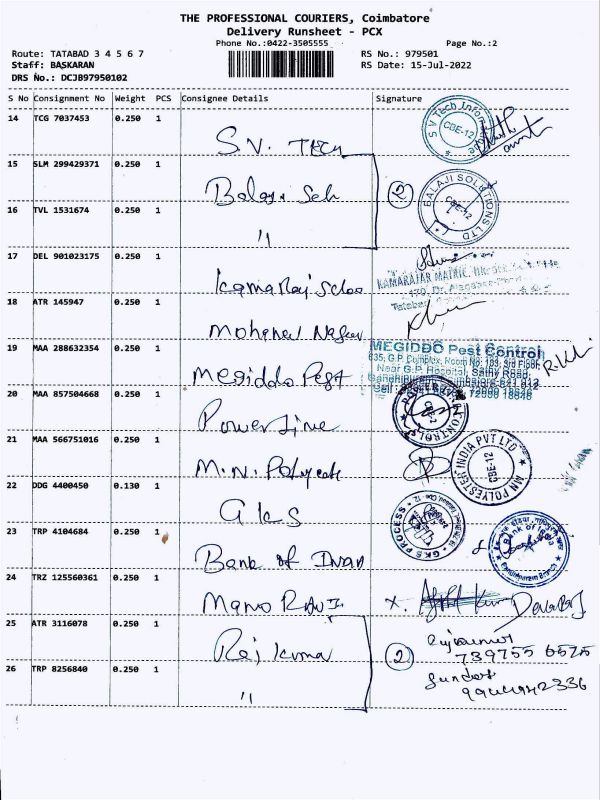 THE PROFESSIONAL COURIERS, Coimbatore
Delivery Runsheet - PCX
Phone No.:0422-3505555 Page No.:2
Route: TATABAD 3 4 5 6 7 RS No.: 979501
Staff: BASKARAN RS Date: 15-Jul-2022
DRS No.: DCJB97950102
S No Consignment No Weight PCS Consignee Details Signature
14 TCG 7037453 0.250 1
S.V. TECH
S V Tech CBE-12
15 SLM 299429371 0.250 1
Balaji Sol
2
BALAJI SOLUTIONS LTD CBE-12
16 TVL 1531674 0.250 1
"
17 DEL 901023175 0.250 1
Kamaraj School
KAMARAJAR MATRIC.
18 ATR 145947 0.250 1
Mohamed
19 MAA 288632354 0.250 1
Megiddo Pest
MEGIDDO Pest Control
635, G.P. Complex, Room No: 133, 3rd Floor,
Near G.P. Hospital, Sathy Road,
20 MAA 857504668 0.250 1
Power Line
POWER CONTROLS
21 MAA 566751016 0.250 1
M.N. Polyester
MN POLYESTER INDIA PVT LTD CBE-12
22 DDG 4400450 0.130 1
GKS
GKS PROCESS
23 TRP 4104684 0.250 1
Bank of India
Bank of India
24 TRZ 125560361 0.250 1
Mano Ravi
x. Devaraj
25 ATR 3116078 0.250 1
Raj Kumar
2
Rajkumar
739755 6575
26 TRP 8256840 0.250 1
"
Sundar